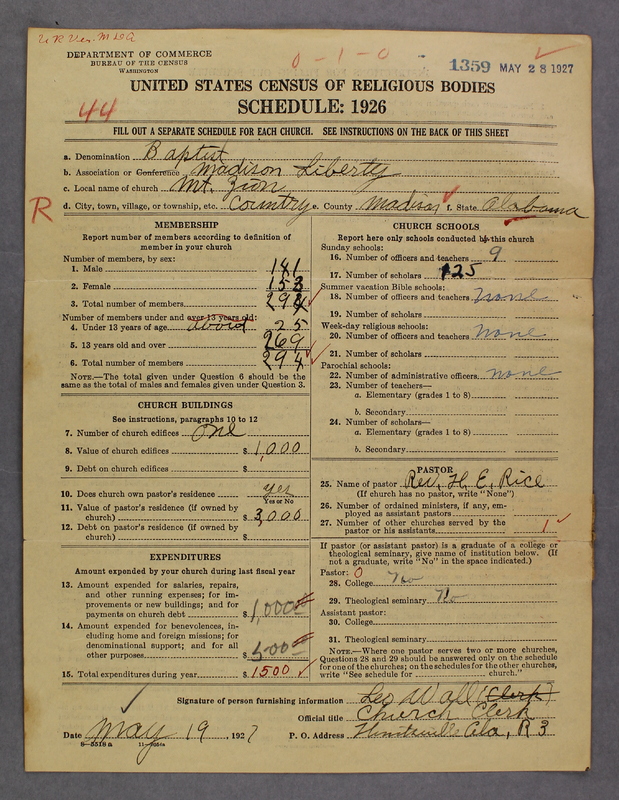 DEPARTMENT OF COMMERCE
BUREAU OF THE CENSUS
WASHINGTON
0-1-0
1359 MAY 28 1927
UNITED STATES CENSUS OF RELIGIOUS BODIES
SCHEDULE: 1926
44
FILL OUT A SEPARATE SCHEDULE FOR EACH CHURCH. SEE INSTRUCTIONS ON THE BACK OF THIS SHEET
a. Denomination Baptist
b. Association or Conference Madison Liberty
c. Local name of church Mt. Zion
R
d. City, town, village, or township, etc. Country e. County Madison f. State Alabama
MEMBERSHIP
Report number of members according to definition of
member in your church
Number of members, by sex:
1. Male 141
2. Female 153
3. Total number of members 294
Number of members under and over 13 years old:
4. Under 13 years of age about 25
5. 13 years old and over 269
6. Total number of members 294
NOTE.—The total given under Question 6 should be the
same as the total of males and females given under Question 3.
CHURCH BUILDINGS
See instructions, paragraphs 10 to 12
7. Number of church edifices One
8. Value of church edifices $ 1,000
9. Debt on church edifices $
10. Does church own pastor's residence yes
Yes or No
11. Value of pastor's residence (if owned by
church) $ 3,000
12. Debt on pastor's residence (if owned by
church) $
EXPENDITURES
Amount expended by your church during last fiscal year
13. Amount expended for salaries, repairs,
and other running expenses; for im-
provements or new buildings; and for
payments on church debt $ 1,000
14. Amount expended for benevolences, in-
cluding home and foreign missions; for
denominational support; and for all
other purposes $ 500
15. Total expenditures during year $ 1500
CHURCH SCHOOLS
Report here only schools conducted by this church
Sunday schools:
16. Number of officers and teachers 9
17. Number of scholars 125
Summer vacation Bible schools:
18. Number of officers and teachers none
19. Number of scholars
Week-day religious schools:
20. Number of officers and teachers none
21. Number of scholars
Parochial schools:
22. Number of administrative officers none
23. Number of teachers—
a. Elementary (grades 1 to 8)
b. Secondary
24. Number of scholars—
a. Elementary (grades 1 to 8)
b. Secondary
PASTOR
25. Name of pastor Rev. H. E. Rice
(If church has no pastor, write "None")
26. Number of ordained ministers, if any, em-
ployed as assistant pastors
27. Number of other churches served by the
pastor or his assistants 1
If pastor (or assistant pastor) is a graduate of a college or
theological seminary, give name of institution below. (If
not a graduate, write "No" in the space indicated.)
Pastor: 0
28. College No
29. Theological seminary No
Assistant pastor:
30. College
31. Theological seminary
NOTE.—Where one pastor serves two or more churches,
Questions 28 and 29 should be answered only on the schedule
for one of the churches; on the schedules for the other churches,
write "See schedule for church."
Signature of person furnishing information Leo Wall (Clerk)
Official title Church Clerk
Date May 19, 1927 P. O. Address Huntsville Ala, R 3
8—5518a